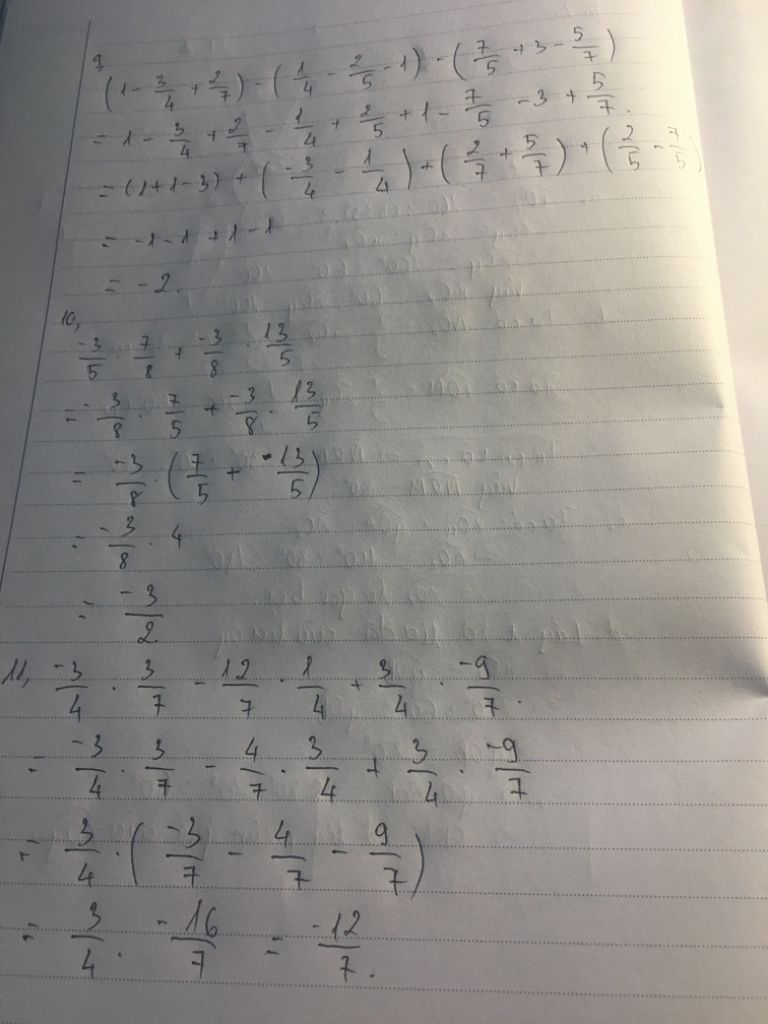 9,
(1 - 3/4 + 2/7) - (1/4 - 2/5 - 1) - (7/5 + 3 - 5/7)
= 1 - 3/4 + 2/7 - 1/4 + 2/5 + 1 - 7/5 - 3 + 5/7.
= (1+1-3) + (-3/4 - 1/4) + (2/7 + 5/7) + (2/5 - 7/5)
= -1 - 1 + 1 - 1
= -2.
10,
-3/5 . 7/8 + -3/8 . 13/5
= -3/8 . 7/5 + -3/8 . 13/5
= -3/8 . (7/5 + 13/5)
= -3/8 . 4
= -3/2
11, -3/4 . 3/7 - 12/7 . 1/4 + 3/4 . -9/7.
= -3/4 . 3/7 - 4/7 . 3/4 + 3/4 . -9/7
= 3/4 . (-3/7 - 4/7 - 9/7)
= 3/4 . -16/7 = -12/7.